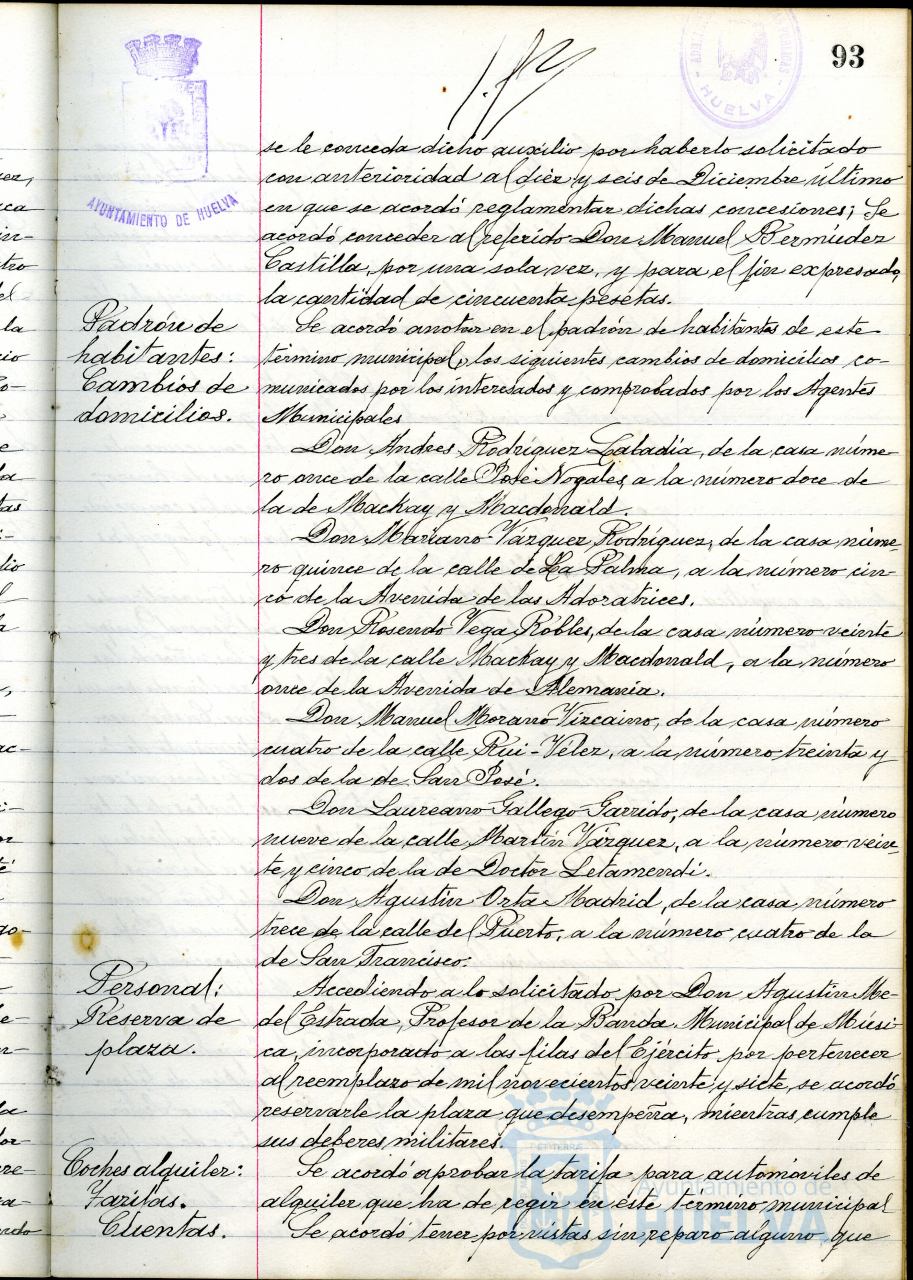 93
AYUNTAMIENTO DE HUELVA
HUELVA
se le conceda dicho auxilio por haberlo solicitado
con anterioridad al diez y seis de Diciembre último
en que se acordó reglamentar dichas concesiones; Se
acordó conceder al referido Don Manuel Bermúdez
Castilla, por una sola vez, y para el fin expresado,
la cantidad de cincuenta pesetas.
Padrón de
habitantes:
Cambios de
domicilios.
Se acordó anotar en el padrón de habitantes de este
término municipal, los siguientes cambios de domicilios co-
municados por los interesados y comprobados por los Agentes
Municipales
Don Andres Rodríguez Labadía, de la casa núme-
ro once de la calle José Nogales, a la número doce de
la de Mackay y Macdonald.
Don Mariano Vázquez Rodríguez, de la casa núme-
ro quince de la calle de La Palma, a la número cin-
co de la Avenida de las Adoratrices.
Don Rosendo Vega Robles, de la casa número veinte
y tres de la calle Mackay y Macdonald, a la número
once de la Avenida de Alemania.
Don Manuel Morano Vizcaino, de la casa número
cuatro de la calle Rui-Velez, a la número treinta y
dos de la de San José.
Don Laureano Gallego Garrido, de la casa número
nueve de la calle Martín Vázquez, a la número vein-
te y cinco de la de Doctor Letamendi.
Don Agustín Orta Madrid, de la casa número
trece de la calle del Puerto, a la número cuatro de la
de San Francisco.
Personal:
Reserva de
plaza.
Accediendo a lo solicitado por Don Agustín Me-
del Estrada, Profesor de la Banda Municipal de Músi-
ca, incorporado a las filas del Ejército por pertenecer
al reemplazo de mil novecientos veinte y siete, se acordó
reservarle la plaza que desempeña, mientras cumple
sus deberes militares.
Coches alquiler:
Tarifas.
Se acordó aprobar la tarifa para automóviles de
alquiler que ha de regir en éste término municipal
Cuentas.
Se acordó tener por vistas sin reparo alguno, que
Ayuntamiento de
HUELVA